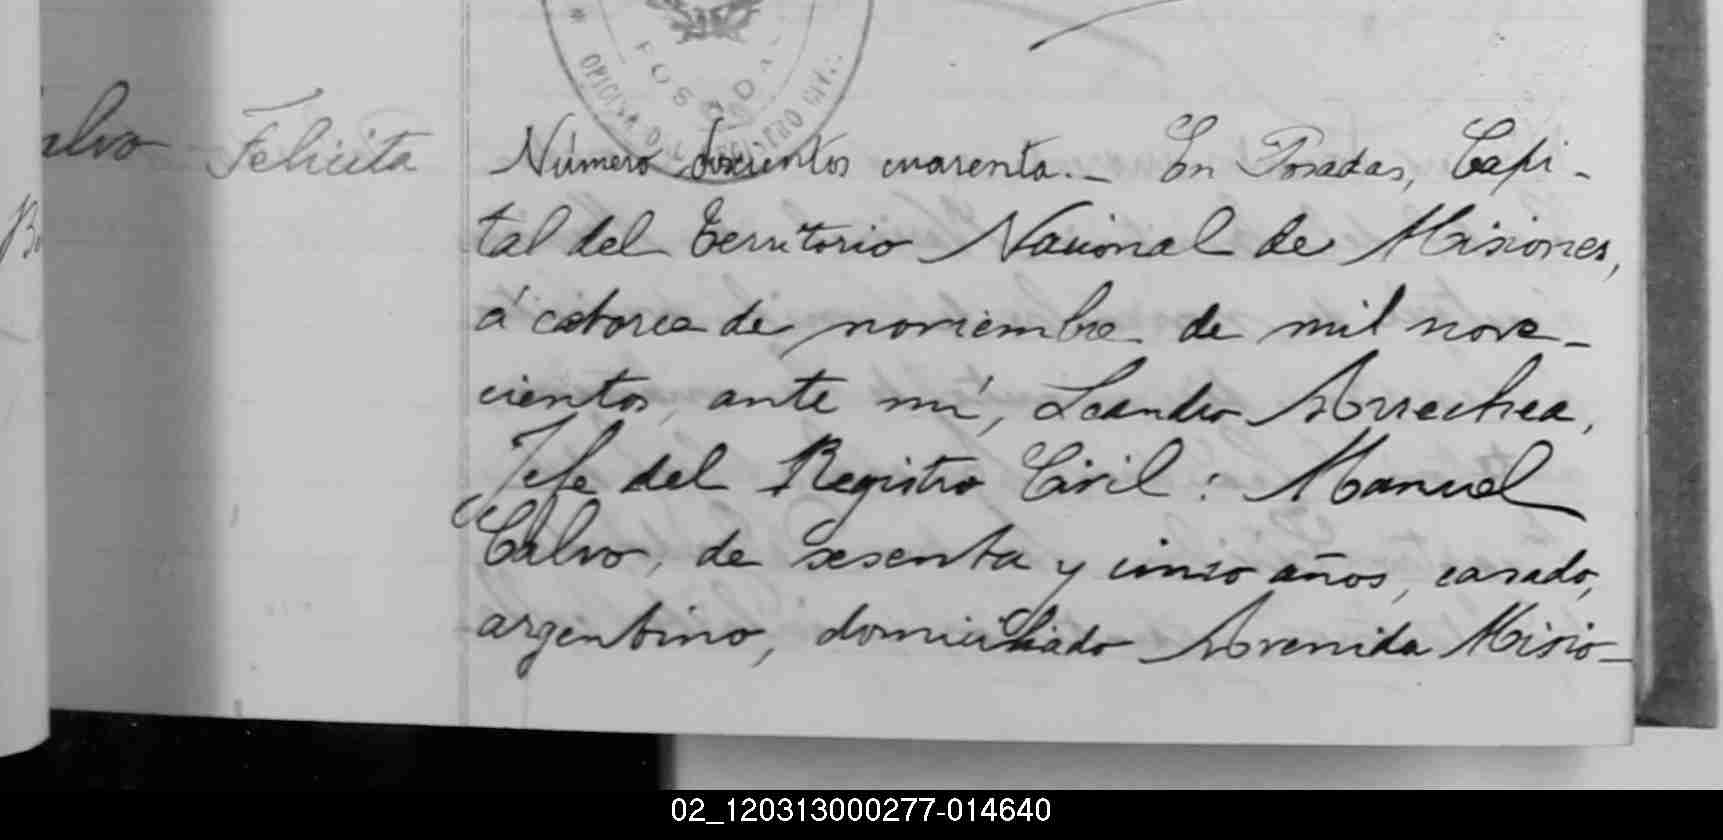 POSADAS
OFICINA DEL REGISTRO CIVIL
alvo Felicita
Número doscientos cuarenta.- En Posadas, Capi-
tal del Territorio Nacional de Misiones,
á catorce de noviembre de mil nove-
cientos, ante mí, Leandro Arrechea,
Jefe del Registro Civil: Manuel
Calvo, de sesenta y cinco años, casado,
argentino, domiciliado Avenida Misio-
02_120313000277-014640